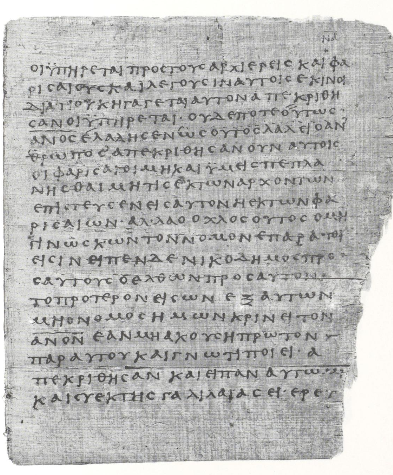 ΝΑ
ΟΙΥΠΗΡΕΤΑΙΠΡΟϹΤΟΥϹΑΡΧΙΕΡΕΙϹΚΑΙΦΑ
ΡΙϹΑΙΟΥϹΚΑΙΛΕΓΟΥϹΙΝΑΥΤΟΙϹΕΚΙΝΟΙ
ΔΙΑΤΙΟΥΚΗΓΑΓΕΤΑΙΑΥΤΟΝΑΠΕΚΡΙΘΗ
ϹΑΝΟΙΥΠΗΡΕΤΑΙ·ΟΥΔΕΠΟΤΕΟΥΤΩϹ·
ΑΝΟϹΕΛΑΛΗϹΕΝΩϹΟΥΤΟϹΛΑΛΕΙΟΑΝ
ΘΡΩΠΟϹΑΠΕΚΡΙΘΗϹΑΝΟΥΝΑΥΤΟΙϹ
ΟΙΦΑΡΙϹΑΙΟΙΜΗΚΑΙΥΜΕΙϹΠΕΠΛΑ
ΝΗϹΘΑΙΜΗΤΙϹΕΚΤΩΝΑΡΧΟΝΤΩΝ
ΕΠΙϹΤΕΥϹΕΝΕΙϹΑΥΤΟΝΗΕΚΤΩΝΦΑ
ΡΙϹΑΙΩΝ·ΑΛΛΑΟΟΧΛΟϹΟΥΤΟϹΟΜΗ
ΓΙΝΩϹΚΩΝΤΟΝΝΟΜΟΝΕΠΑΡΑΤΟΙ
ΕΙϹΙΝΕΙΠΕΝΔΕΝΙΚΟΔΗΜΟϹΠΡΟ
ϹΑΥΤΟΥϹΟΕΛΘΩΝΠΡΟϹΑΥΤΟΝ·
ΤΟΠΡΟΤΕΡΟΝΕΙϹΩΝΕΞΑΥΤΩΝ
ΜΗΟΝΟΜΟϹΗΜΩΝΚΡΙΝΕΙΤΟΝ
ΑΝΟΝΕΑΝΜΗΑΚΟΥϹΗΠΡΩΤΟΝ
ΠΑΡΑΥΤΟΥΚΑΙΓΝΩΤΙΠΟΙΕΙ·Α
ΠΕΚΡΙΘΗϹΑΝΚΑΙΕΙΠΑΝΑΥΤΩ·
ΚΑΙϹΥΕΚΤΗϹΓΑΛΙΛΑΙΑϹΕΙ·ΕΡΕ